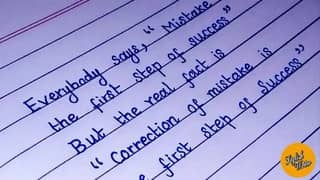 Everybody says, “Mistake
the first step of success”
But the real fact is
“Correction of mistake is
first step of Success”